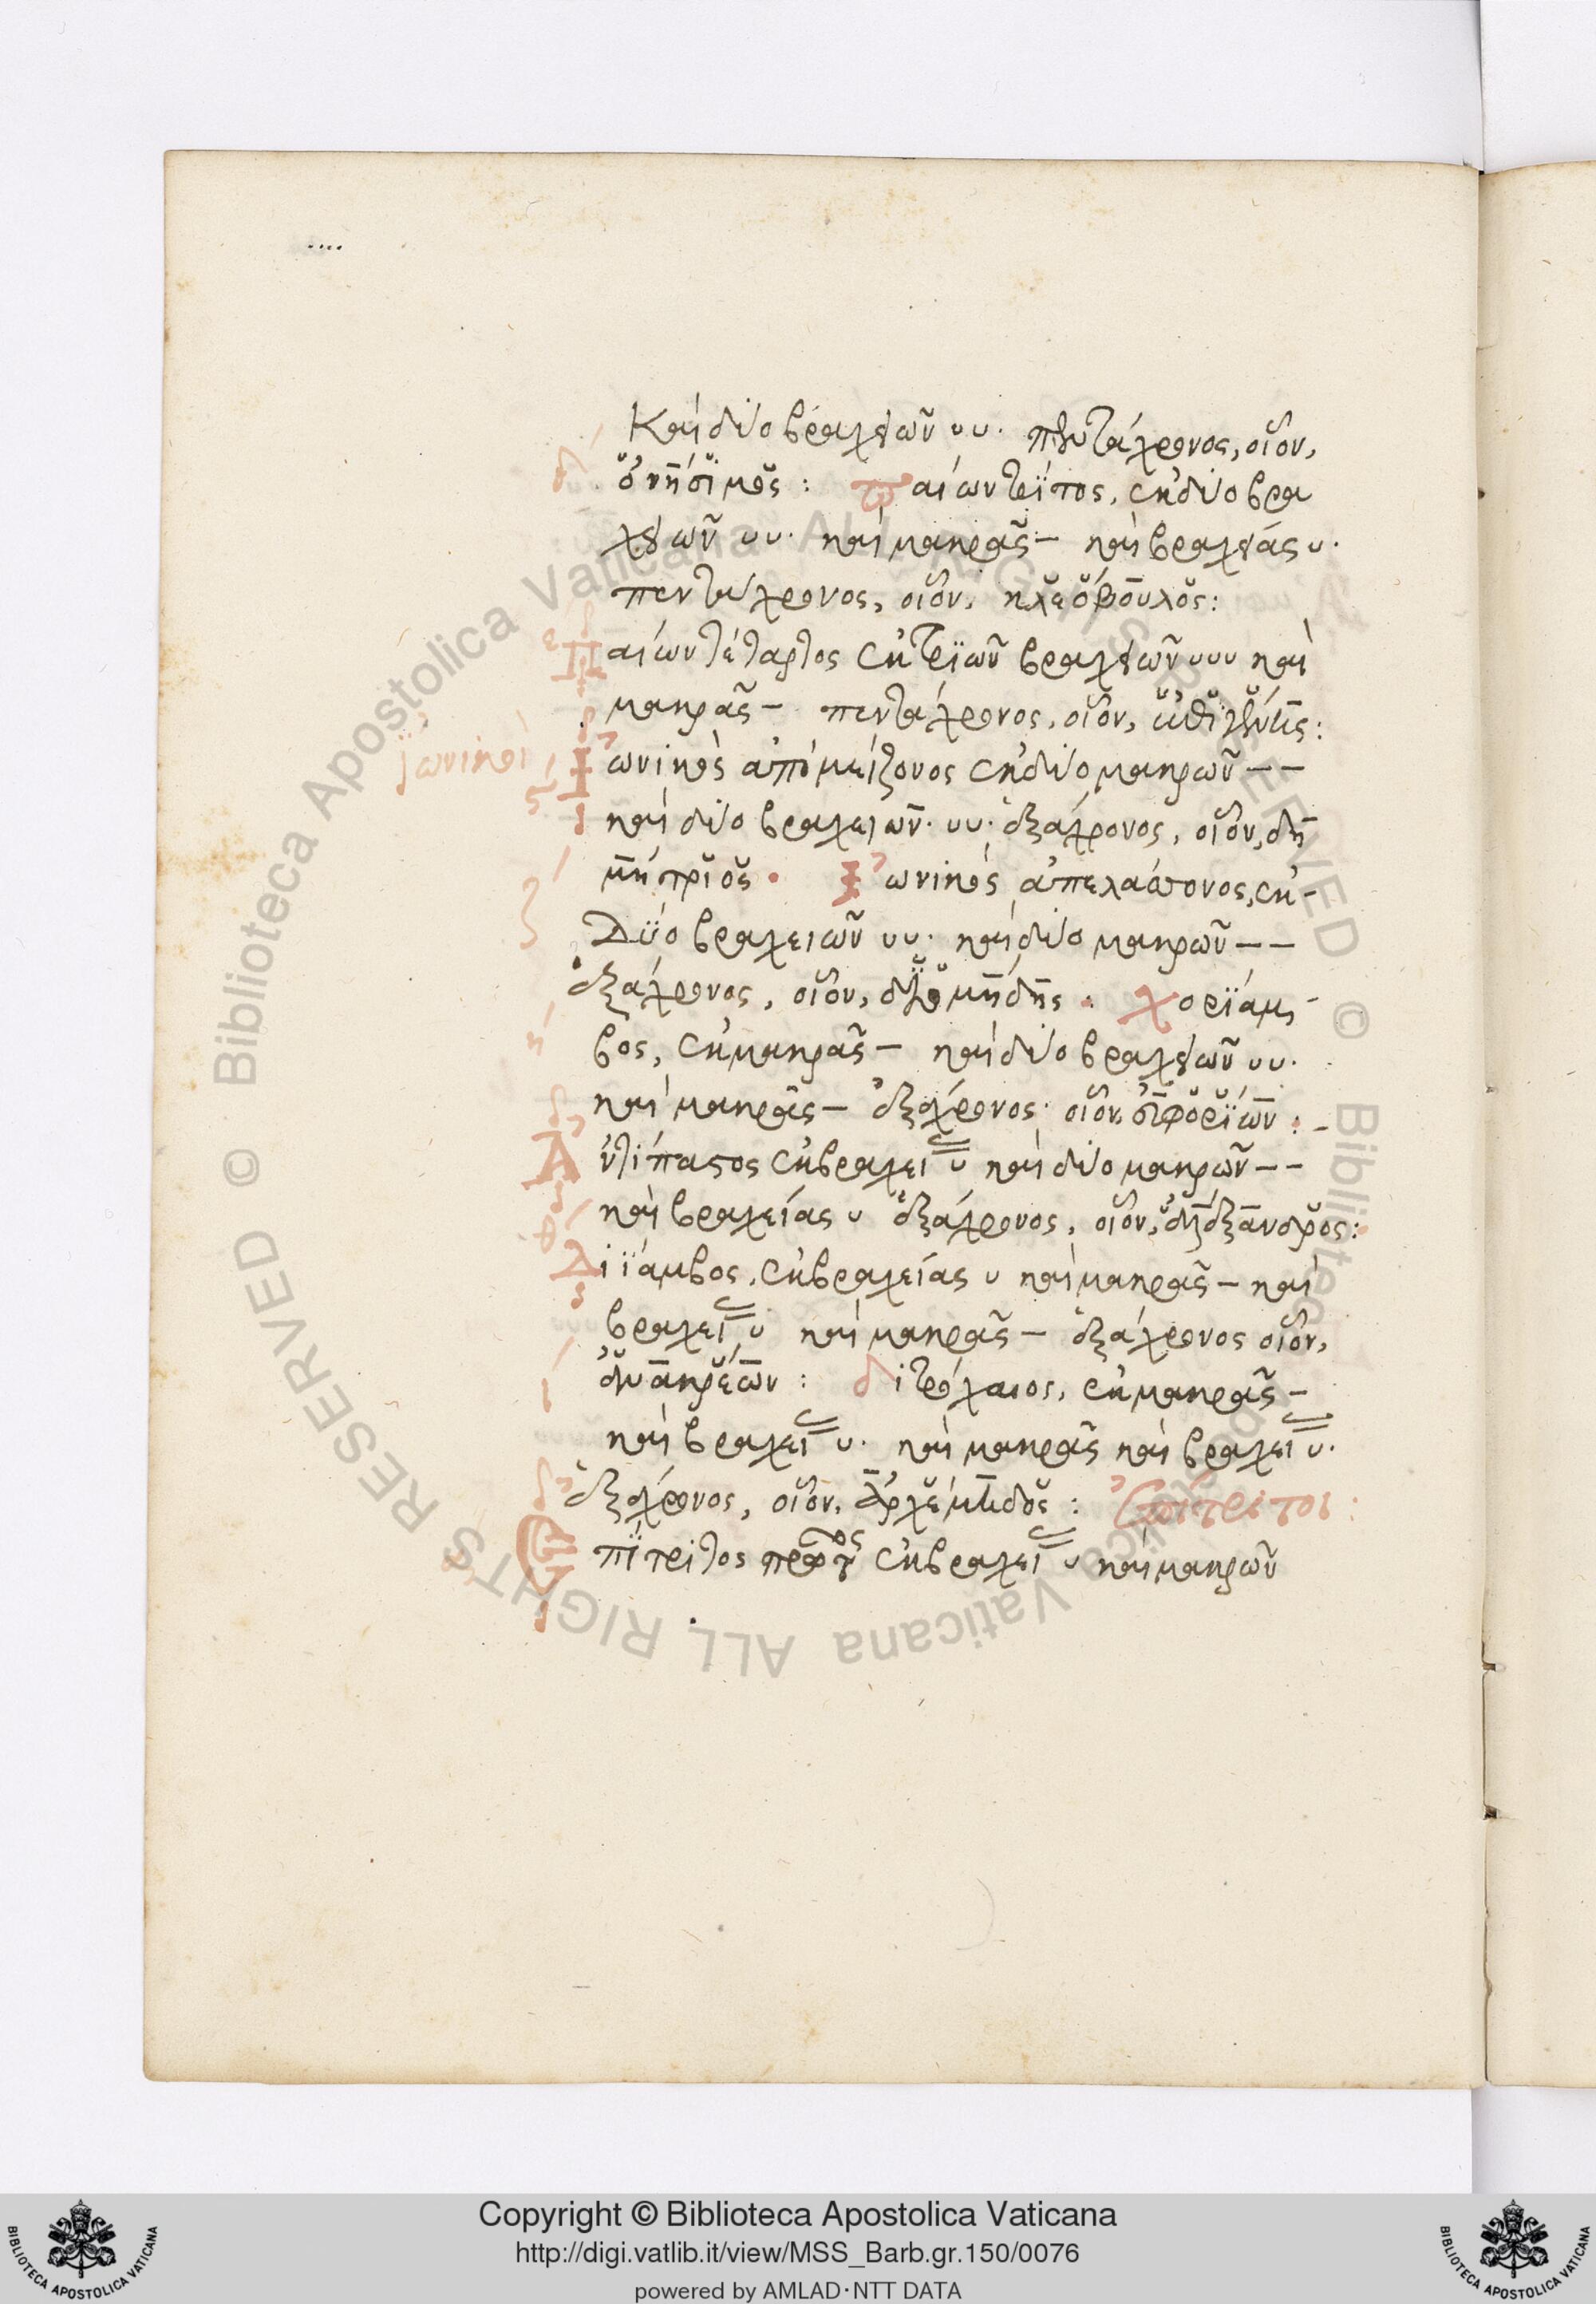 Καὶ δύο βραχειῶν υυ. πεντάχρονος, οἷον,
δ ὀνήσιμος : παίων τρίτος, ἐκ δύο βρα
χειῶν υυ. καὶ μακρᾶς – καὶ βραχείας υ.
πεντάχρονος, οἷον, κλεόβουλος :
ε Παίων τέταρτος ἐκ τριῶν βραχειῶν υυυ καὶ
μακρᾶς – πεντάχρονος, οἷον,
ἰωνικοὶ Ἰωνικὸς ἀπὸ μείζονος ἐκ δύο μακρῶν – –
καὶ δύο βραχειῶν. υυ. ἑξάχρονος, οἷον, δη
μήτριος . Ἰωνικὸς ἀπ' ἐλάσσονος, ἐκ -
Δύο βραχειῶν υυ. καὶ δύο μακρῶν – –
ἑξάχρονος, οἷον, διομήδης . χορίαμ,
βος, ἐκ μακρᾶς – καὶ δύο βραχειῶν υυ.
καὶ μακρᾶς – ἑξάχρονος. οἷον :
Ἀντίπαστος ἐκ βραχείας υ καὶ δύο μακρῶν – –
καὶ βραχείας υ ἑξάχρονος, οἷον, ἀλέξανδρος :
Διΐαμβος, ἐκ βραχείας υ καὶ μακρᾶς – καὶ
βραχείας υ καὶ μακρᾶς – ἑξάχρονος οἷον,
ἀνακρέων : διτρόχαιος, ἐκ μακρᾶς –
καὶ βραχείας υ. καὶ μακρᾶς καὶ βραχείας υ.
ἑξάχρονος, οἷον, ἀρχέμιδος : ἐπίτριτοι :
Ἐπίτριτος πρῶτος ἐκ βραχείας υ καὶ μακρῶν
Copyright © Biblioteca Apostolica Vaticana
http://digi.vatlib.it/view/MSS_Barb.gr.150/0076
powered by AMLAD·NTT DATA